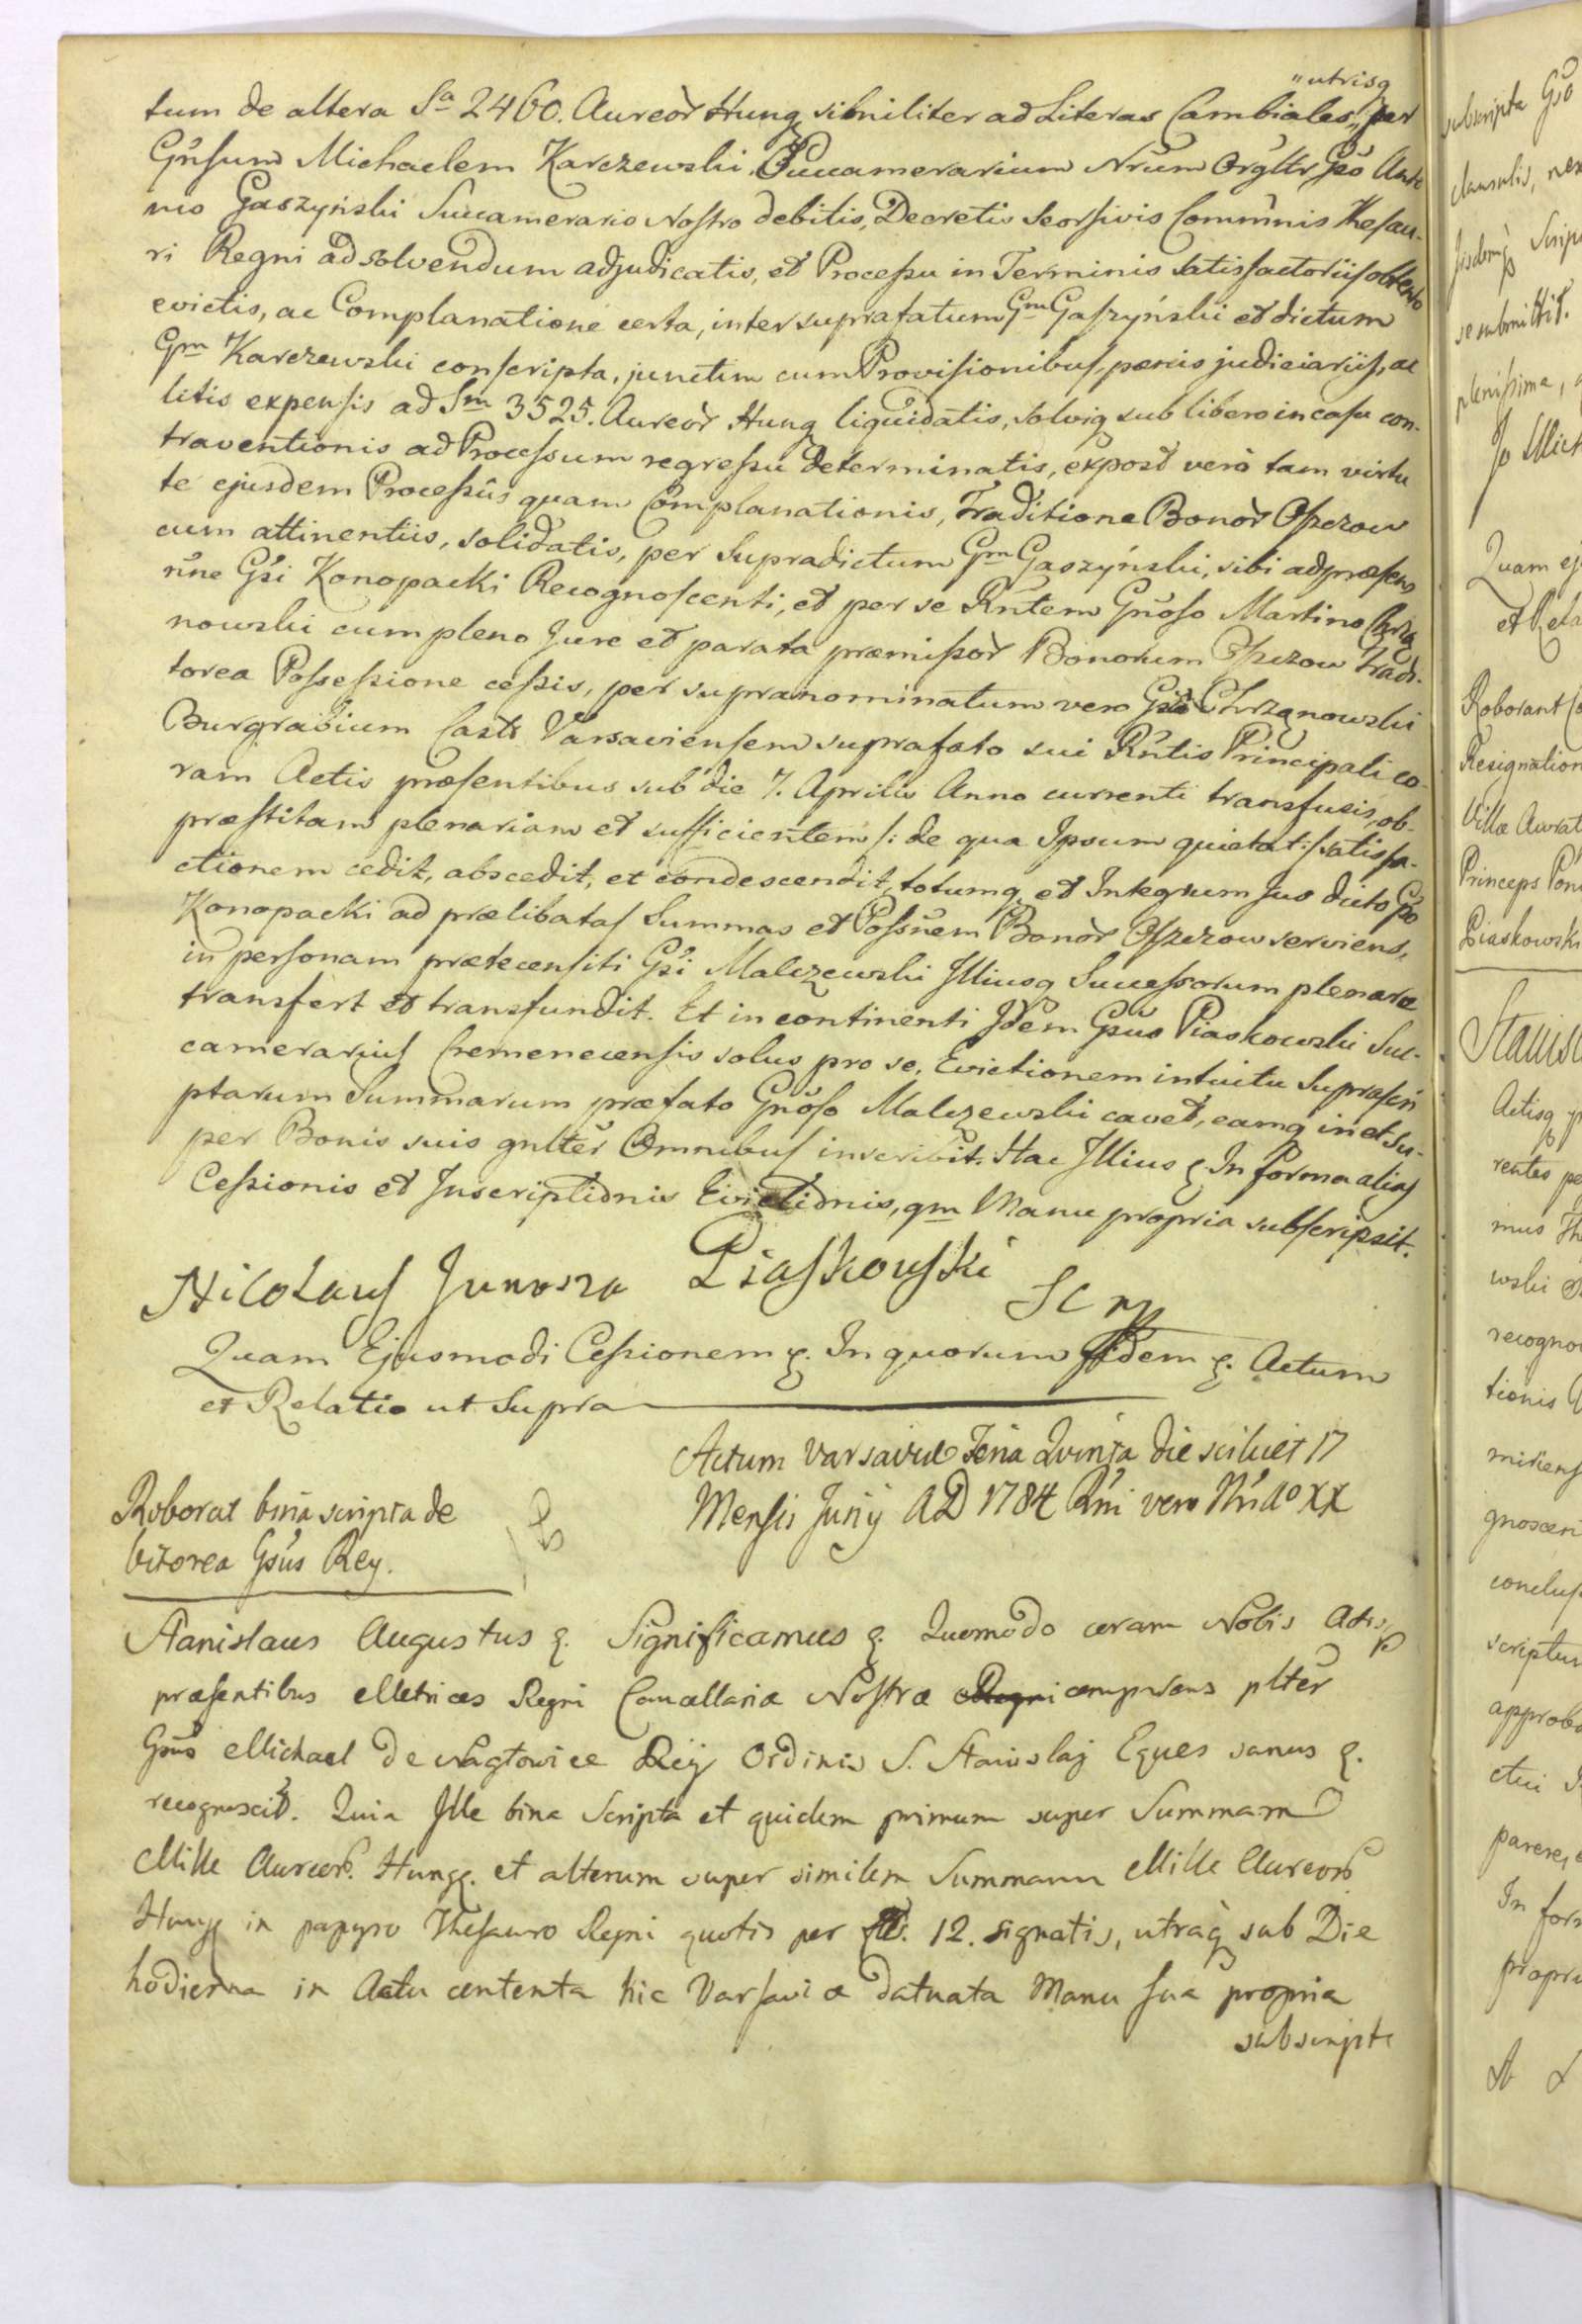 tum de altera Sa 2460. Aureor̃ Hung similiter ad Literas Cambiales, "utrisq̨ per
Gnŭsum Michaelem Karczewski Succamerarium Nrŭm Orgltr Gsŏ Anto
nio Gaszyński Succamerario Nostro debitis, Decretis seorsivis Commĭnis Thesau-
ri Regni ad solvendum adjudicatis, et Processu in Terminis satisfactoriis obtento
evictis, ac Complanatione certa, inter suprafatum Gm Gaszyński et dictum
Gm Karczewski conscripta, junctim cum Provisionibus, pœnis judiciariis, ac
litis expensis ad Sm 3525. Aureor̃ Hung liquidatis, solvig sub libero in casu con-
traventionis ad Processum regressu determinatis, expost verò tam virtu
te ejusdem Processûs quam Complanationis, Traditione Bonor̃ Oszczow
cum attinentiis, solidatis, per Supradictum Gm Gaszyński, sibi ad præsens
rŭne Gsi Konopacki Recognoscenti, et per se Rńtem Gnŏso Martino Chrzą
nowski cum pleno Jure et parata præmissor̃ Bonorum Oszczow Tradi-
torea Possessione cessis, per supranominatum vero Gsŏ Chrząnowski
Burgrabium Castr Varsaviensem suprafato sui Rńtis Principali co-
ram Actis præsentibus sub die 7. Aprilis Anno currenti transfusis, ob-
præstitam plenariam et sufficientem /: de qua Ipsum quietat :/ satisfa-
ctionem cedit, abscedit, et condescendit, totumq̨ et Integrum Jus dicto Gsŏ
Konopacki ad prælibatas Summas et Possnĕm Bonor̃ Oszczow serviens,
in personam prætecensiti Gsi Malczewski Illiusq̨ Successorum plenarie
transfert et transfundit. Et in continenti Idem Gsŭs Piaskowski Suc-
camerarius Cremenecensis solus pro se, Evictionem intuitu Suprascri
ptarum Summarum præfato Gnŏso Malczewski cavet, eamq̨ in et su-
per Bonis suis gnltĕr Omnibus inscribit. Hac Illius & In forma alias
Cessionis et Inscriptionis Evictionis, qm Manu propria subscripsit.
Nicolaus Junosza Piaskouski SC mp
Quam Ejusmodi Cessionem &. In quorum fidem &. Actum
et Relatio ut Supra
Actum Varsaviæ Feria Quinta die scilicet 17
Mensis Junij AD 1784 Rńi vero Nri Ao XX
Roborat bina scripta de
bitorea Gsŭs Rey.
Stanislaus Augustus &. Significamus &. Quomodo coram Nobis Actisq̨
præsentibus Metrices Regni Cancellariæ Nostræ Regni comparens pltĕr
Gsŭs Michael de Nagłowice Rey Ordinis S. Stanislaj Eques sanus &.
recognoscit. Quia Ille bina Scripta et quidem primum super Summam
Mille Aureor̃. Hung. et alterum super similem Summam Mille Aureor̃
Hung in papyro Thesauro Regni quotis per fl. 12. signatis, utraq̨ sub Die
hodierna in Actu contenta hic Varsaviæ datuata Manu sua propria
subscripta